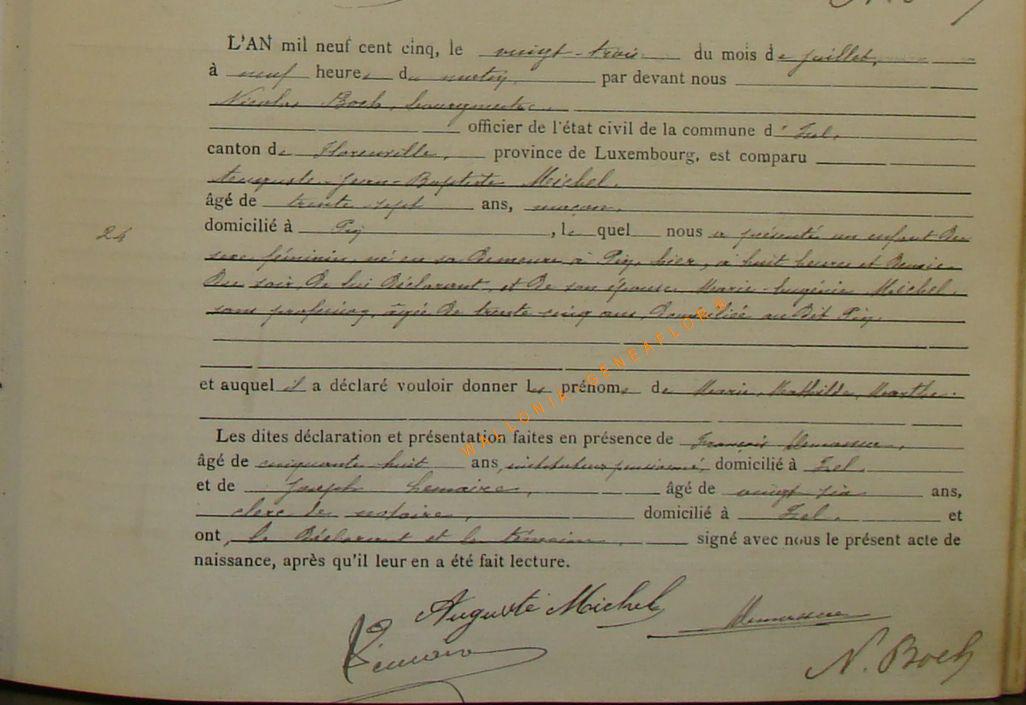 L'AN mil neuf cent cinq, le vingt-trois du mois de juillet,
à neuf heures du matin par devant nous
Nicolas Boch, bourgmestre
officier de l'état civil de la commune d'Izel,
canton de Florenville, province de Luxembourg, est comparu
Auguste-Jean-Baptiste Michel,
âgé de trente sept ans, maçon,
domicilié à Pin, le quel nous a présenté un enfant du
24
sexe féminin, né en sa demeure à Pin, hier, à huit heures et demie
du soir, de lui déclarant, et de son épouse Marie-Eugénie Michel,
sans profession, âgée de trente-cinq ans, domiciliée au dit Pin,
et auquel il a déclaré vouloir donner les prénoms de Marie, Mathilde, Marthe.
Les dites déclaration et présentation faites en présence de François
âgé de cinquante huit ans, instituteur pensionné, domicilié à Izel,
et de Joseph Lemaire, âgé de vingt six ans,
clerc de notaire, domicilié à Izel, et
ont, le déclarant et les témoins, signé avec nous le présent acte de
naissance, après qu'il leur en a été fait lecture.
Auguste Michel
Lemaire
N. Boch
WALLONIA-GENEAFLOR